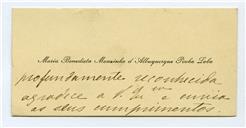 Maria Benedicta Mousinho d'Albuquerque Pinho Lobo
profundamente reconhecida
agradece a V. Ex.ª e envia
os seus cumprimentos.